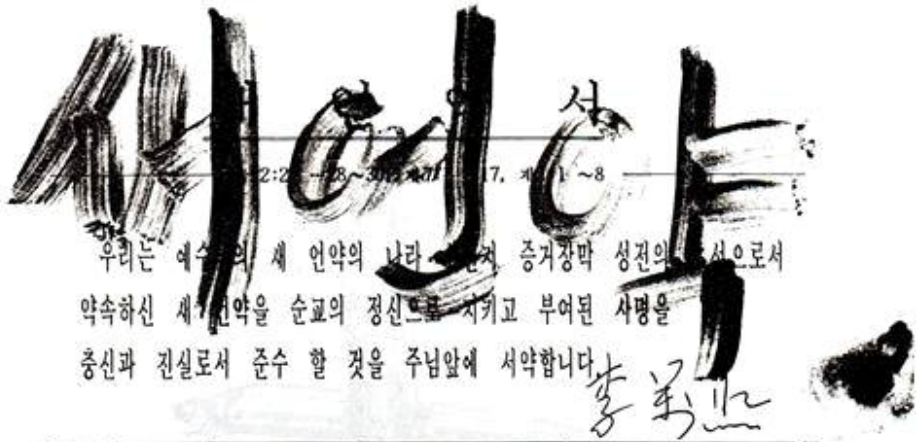 새언약
서
2:2 28~30 17, 계 1 ~8
우리는 예수 의 새 언약의 나라 증거장막 성전의 선으로서
약속하신 새 언약을 순교의 정신으로 지키고 부여된 사명을
충신과 진실로서 준수 할 것을 주님앞에 서약합니다.
李萬熙